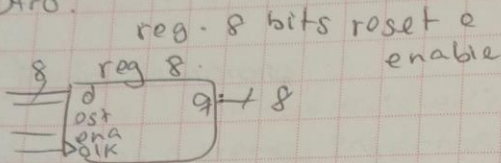 reg. 8 bits roset e
enable
8 reg 8.
d q 8
ost
ena
clk